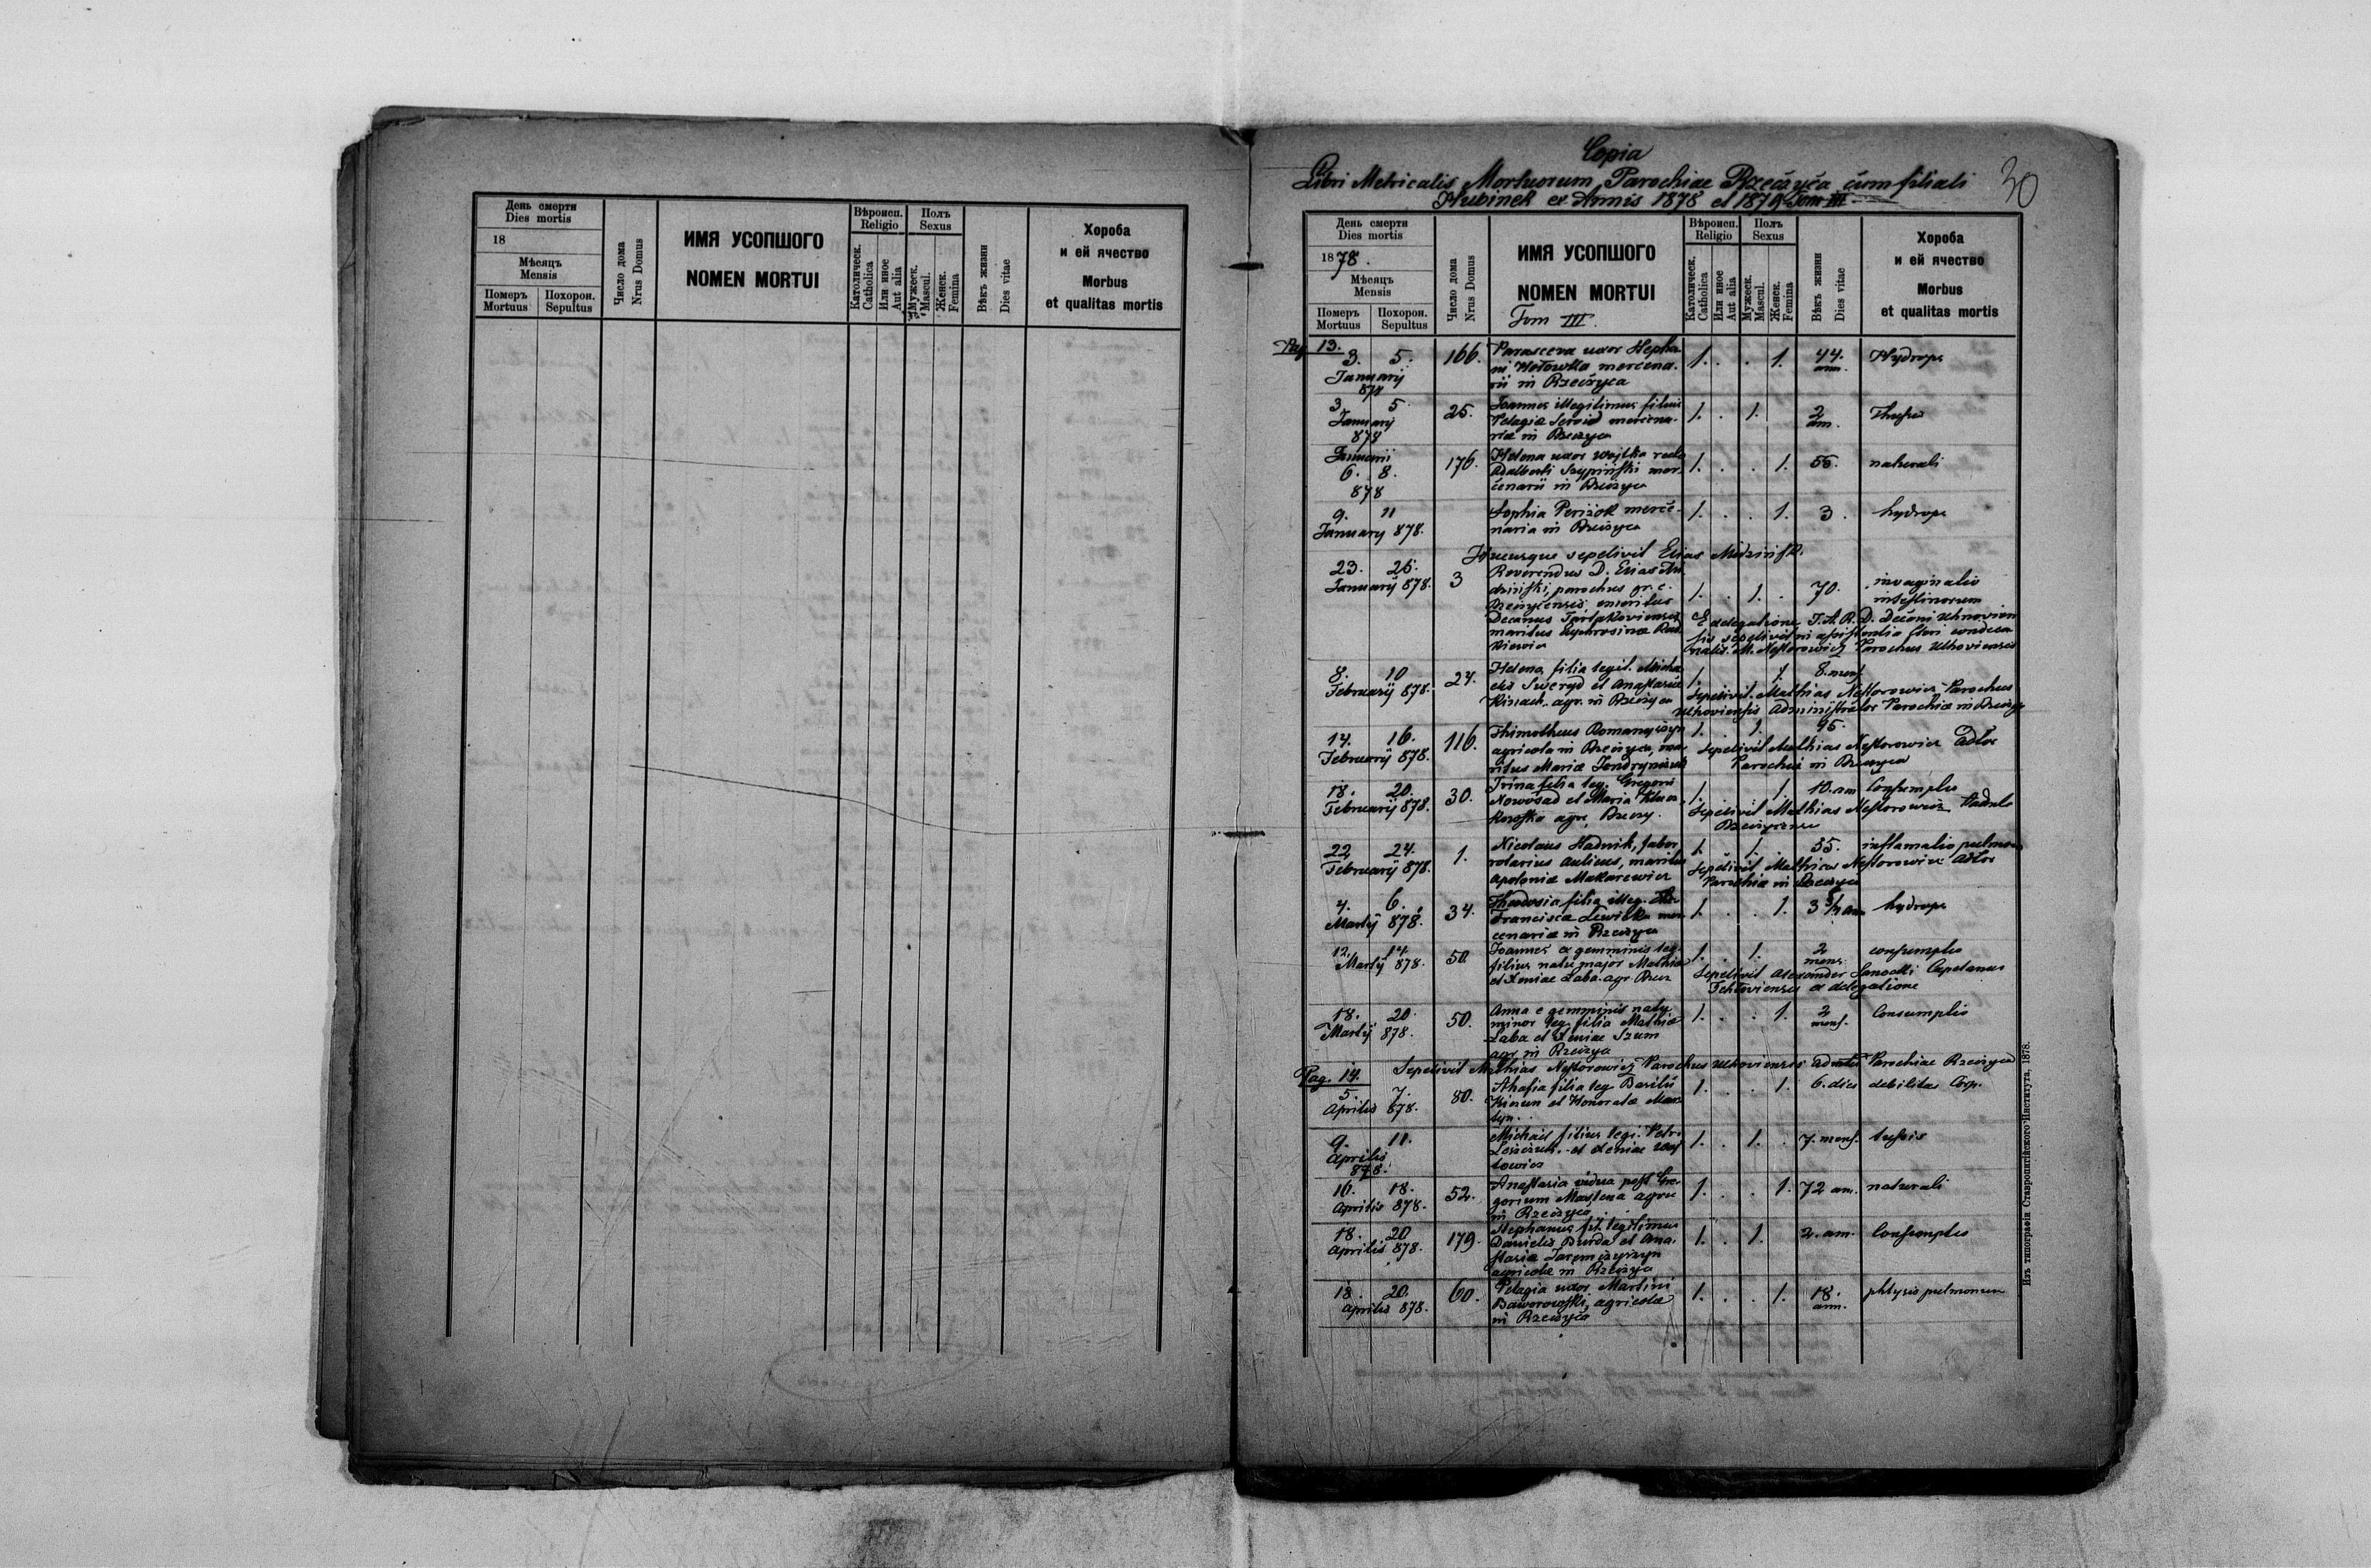 День смерти
Dies mortis
18
Мѣсяцъ
Mensis
Померъ
Mortuus
Похорон.
Sepultus
Число дома
Nrus Domus
ИМЯ УСОПШОГО
NOMEN MORTUI
Вѣроисп.
Religio
Католическ.
Catholica
Или иное
Aut alia
Полъ
Sexus
Мужеск.
Mascul.
Женск.
Femina
Вѣкъ жизни
Dies vitae
Хороба
и ей ячество
Morbus
et qualitas mortis
Copia
Libri Metricalis Mortuorum Parochiae Rzeczyca cum filiali
Hubinek ex Annis 1878 et 1879 Tom III
30
День смерти
Dies mortis
1878.
Мѣсяцъ
Mensis
Померъ
Mortuus
Похорон.
Sepultus
Число дома
Nrus Domus
ИМЯ УСОПШОГО
NOMEN MORTUI
Tom III.
Вѣроисп.
Religio
Католическ.
Catholica
Или иное
Aut alia
Полъ
Sexus
Мужеск.
Mascul.
Женск.
Femina
Вѣкъ жизни
Dies vitae
Хороба
и ей ячество
Morbus
et qualitas mortis
Pag. 13.
3. 5. 166. Parasceva uxor Stepha 1. . . 1. 44. Hydrops
Januarij ni mercena. ann.
878 rii in Rzeczyca
3. 5. 25. Joannes illegitimus filius 1. . 1. 2
Januarij Pelagiæ mercena- ann.
878 riæ in Rzeczyca
Januarii Helena uxor Wojtka recte
6. 8. 176. Adalberti mer- 1. . . 1. 55. naturali
878 cenarii in Rzeczyca
9. 11 Sophia merce- 1. . . 1. 3. hydrops
Januarij 878. naria in Rzeczyca
Hucusque sepelivit Elias
23. 25. Reverendus D. Elias
Januarij 878. 3 parochus gr. c. 1. . 1. . 70. invaginatio
emeritus intestinorum
Decanus E delegatione Decani
maritus sepelivit in assistentia
M. Nestorowicz Parochus
8. 10 27. Helena, filia legit. Micha 1. 1. 8. mens.
Februarij 878. elis et Anastasiæ Sepelivit Mathias Nestorowicz Parochus
agr. in Rzeczyca Administrator Parochiæ in
14. 16. 116. Thimotheus 1. . 1. 95.
Februarij 878. agricola in Rzeczyca, ma- Sepelivit Mathias Nestorowicz Adtor
ritus Mariæ Parochiæ in Rzeczyca
18. 20. 30. Irina filia leg. Gregorii 1. 1. 10. ann Consumptio
Februarij 878. Nowosad et Maria Sepelivit Mathias Nestorowicz
agr.
22. 24. 1. Nicolaus Hadnik, faber 1. 1. . 55. inflamatio pulmon
Februarij 878. rotarius aulicus, maritus Sepelivit Mathias Nestorowicz Adtor
Apoloniæ Makarewicz Parochiæ in Rzeczyca
4. 6. 34. Theodosia filia illeg. 1. . . 1. hydrops
Martij 878. Franciscæ mer-
cenariæ in Rzeczyca
12. 14. 50. Joannes e gemminis leg. 1. . 1. 2 consumptio
Martij 878. filius natu major Mathiæ mens.
et Xeniae Laba agr. Sepelivit Alexander Sanocki Capelanus
ex delegatione
18. 20. 50. Anna e gemminis natu 1. . . 1. 2 Consumptio
Martij 878. minor leg. filia Mathiæ mens.
Laba et Xeniae Szum
agr. in Rzeczyca
Pag. 14. Sepelivit Mathias Nestorowicz Parochus Parochiae Rzeczyca
5. 7. 80. Ahafia filia leg. Basilii 1. . . 1. 6. dies debilitas Corp.
Aprilis 878. et Honoratæ
9. 11. Michael filius leg. Petri 1. . 1. . 7. mens. tussis
Aprilis et Xeniae
878.
16. 18. 52. Anastasia vidua post Gre- 1. . . 1. 72 ann. naturali
Aprilis 878. gorium agric.
in Rzeczyca
18. 20 179. Stephanus fil. legitimus 1. . 1. 2. ann. Consumptio
Aprilis 878. Danielis Burda et Ana-
stasiæ
agricolæ in Rzeczyca
18. 20. 60. Pelagia uxor Martini 1. . . 1. 18. phtysis pulmonum
Aprilis 878. Baworowski, agricolæ ann.
in Rzeczyca
Изъ типографіи Ставропигійского Института, 1878.